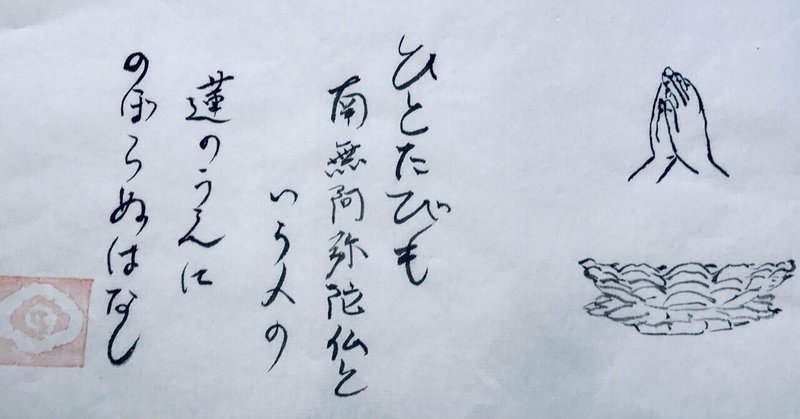 ひとたびも
南無阿弥陀仏と
いう人の
蓮のうえに
のぼらぬはなし